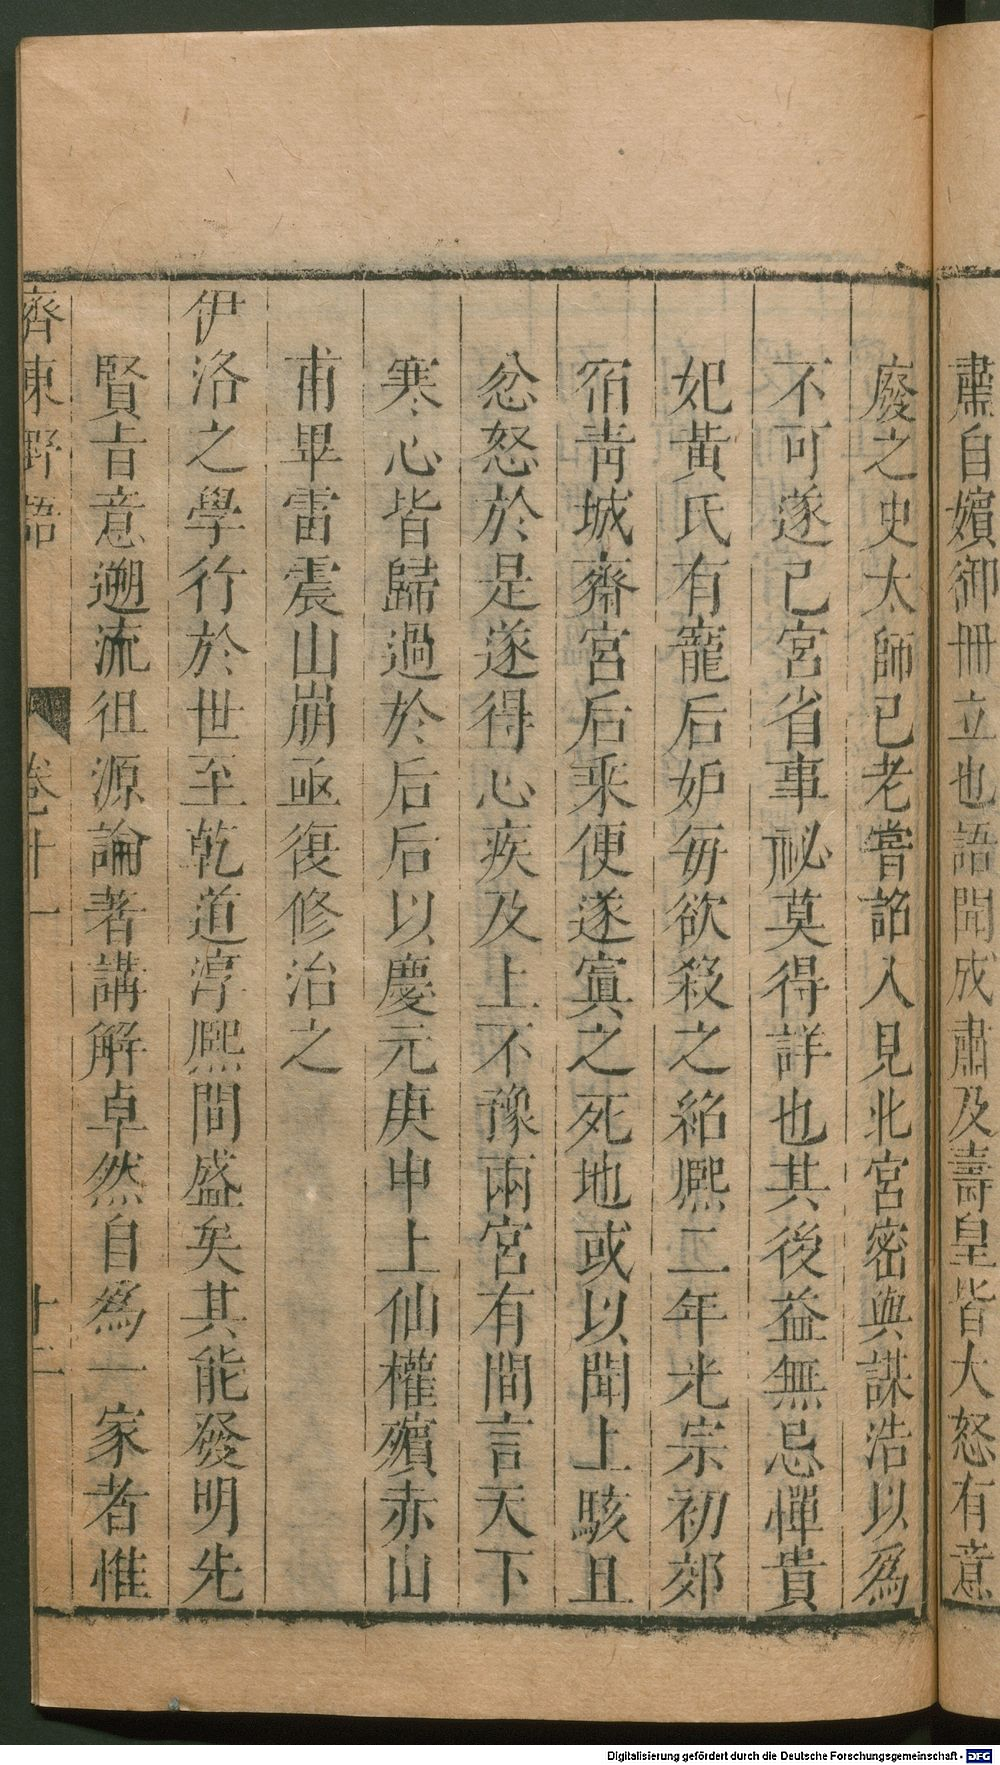 肅自嬪御冊立也語聞成肅及壽皇皆大怒有意
廢之史太師已老嘗詔入見北宮密與謀浩以爲
不可遂已宮省事祕莫得詳也其後益無忌憚貴
妃黃氏有寵后妒毎欲殺之紹熈二年光宗初郊
宿靑城齋宮后乘便遂寘之死地或以聞上駭且
忿怒於是遂得心疾及上不豫兩宮有間言天下
寒心皆歸過於后后以慶元庚申上仙權殯赤山
甫畢雷震山崩亟復修治之
伊洛之學行於世至乾道淳熈間盛矣其能發明先
賢㫖意遡流徂源論著講解卓然自爲一家者惟
齊東野語 卷十一 十二
Digitalisierung gefördert durch die Deutsche Forschungsgemeinschaft - DFG